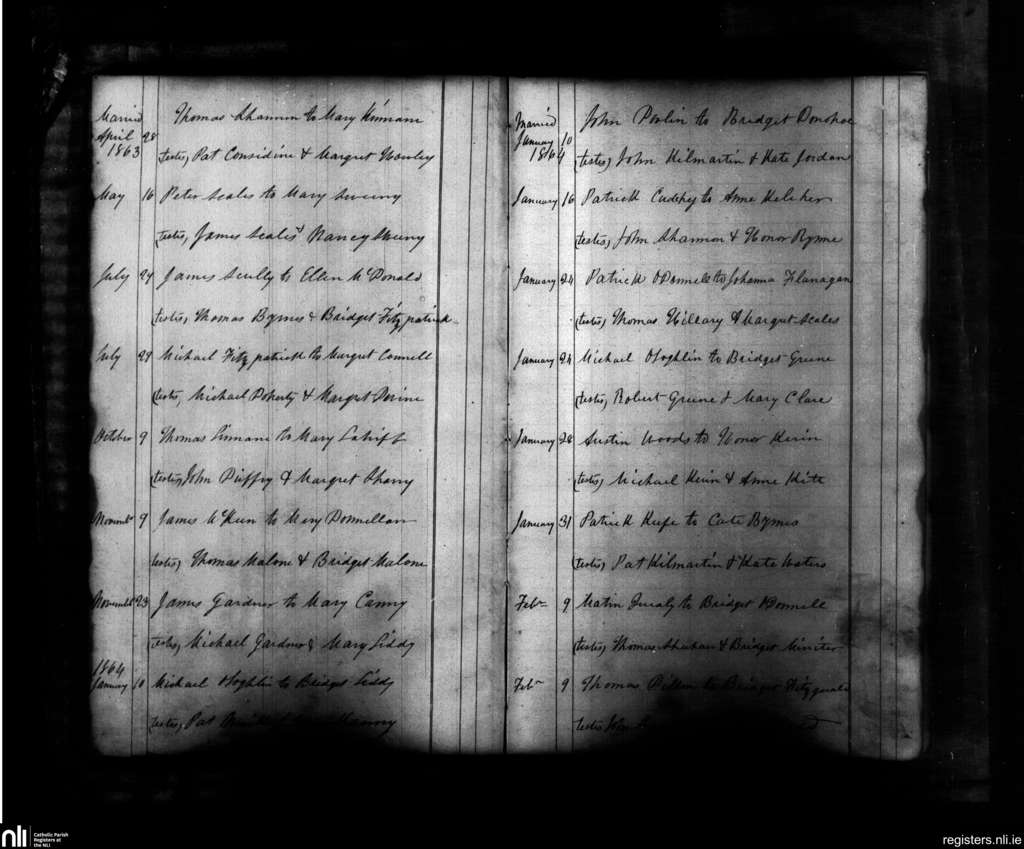 Married
April 28 Thomas Shannon to Mary Kinnane
1863
(testes) Pat Considine & Margret Hawley
May 16 Peter Scales to Mary Sweeny
(testes) James Scales & Nancy Sweeny
July 24 James Scully to Ellen McDonald
(testes) Thomas Byrnes & Bridget Fitzpatrick
July 29 Michael Fitzpatrick to Margret Connell
(testes, Michael Doherty & Margret Devine
October 9 Thomas Linnane to Mary Lahiff
(testes) John Duffry & Margret
Novembr 9 James McKeen to Mary Donnellan
testes) Thomas Malone & Bridget Malone
Novembr 23 James Gardner to Mary Canny
testes, Michael Gardner & Mary Liddy
1864
January 10 Michael OLoghlin to Bridget Liddy
testes, Pat
Married
January 10 John Poolin to Bridget Donohoe
1864
(testes) John Kilmartin & Kate Jordan
January 16 Patrick Cudehy to Anne Keleher
(testes) John Shannon & Honor Rynne
January 24 Patrick ODonnell to Johanna Flanagan
(testes) Thomas Hillary & Margret Scales
January 24 Michael OLoghlin to Bridget Greene
(testes) Robert Greene & Mary Clare
January 28 Austin Woods to Honor Kerin
(testes) Michael Kerin & Anne Kitt
January 31 Patrick Keefe to Cate Byrnes
(testes) Pat Kilmartin & Kate Waters
Febr 9 Matin to Bridget ODonnell
(testes) Thomas Shahan & Bridget Miniter
Febr 9 Thomas Dillon to Bridget Fitzgerald
testes John
nli Catholic Parish
Registers at
the NLI
registers.nli.ie